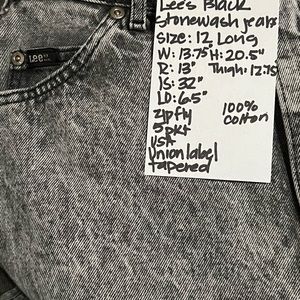 Lee
Lees Black
Stonewash jeans
Size: 12 Long
W: 13.75" H: 20.5"
R: 13" Thigh: 12.75
IS: 32"
LO: 6.5"
Zip fly
100%
cotton
5 pkt
USA
Union label
Tapered